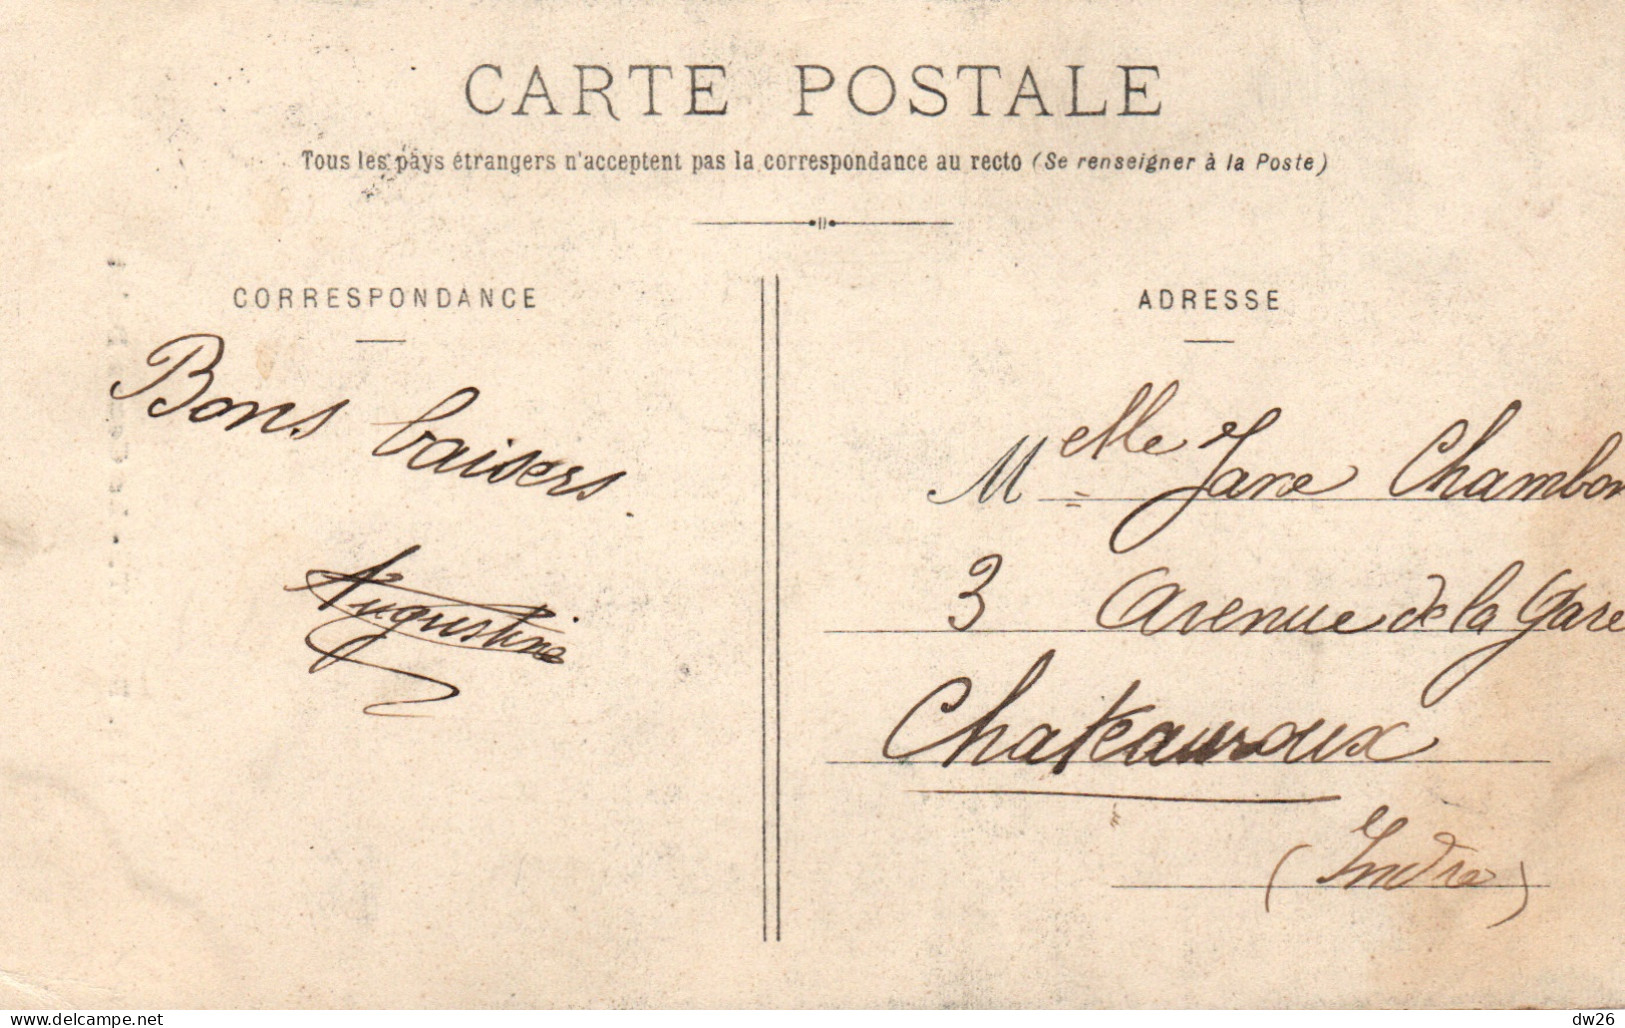 CARTE POSTALE
Tous les pays étrangers n'acceptent pas la correspondance au recto (Se renseigner à la Poste)
CORRESPONDANCE
Bons baisers.
Augustine
ADRESSE
Melle Jane Chambon
3 Avenue de la Gare
Chateauroux
(Indre)
delcampe.net
dw26